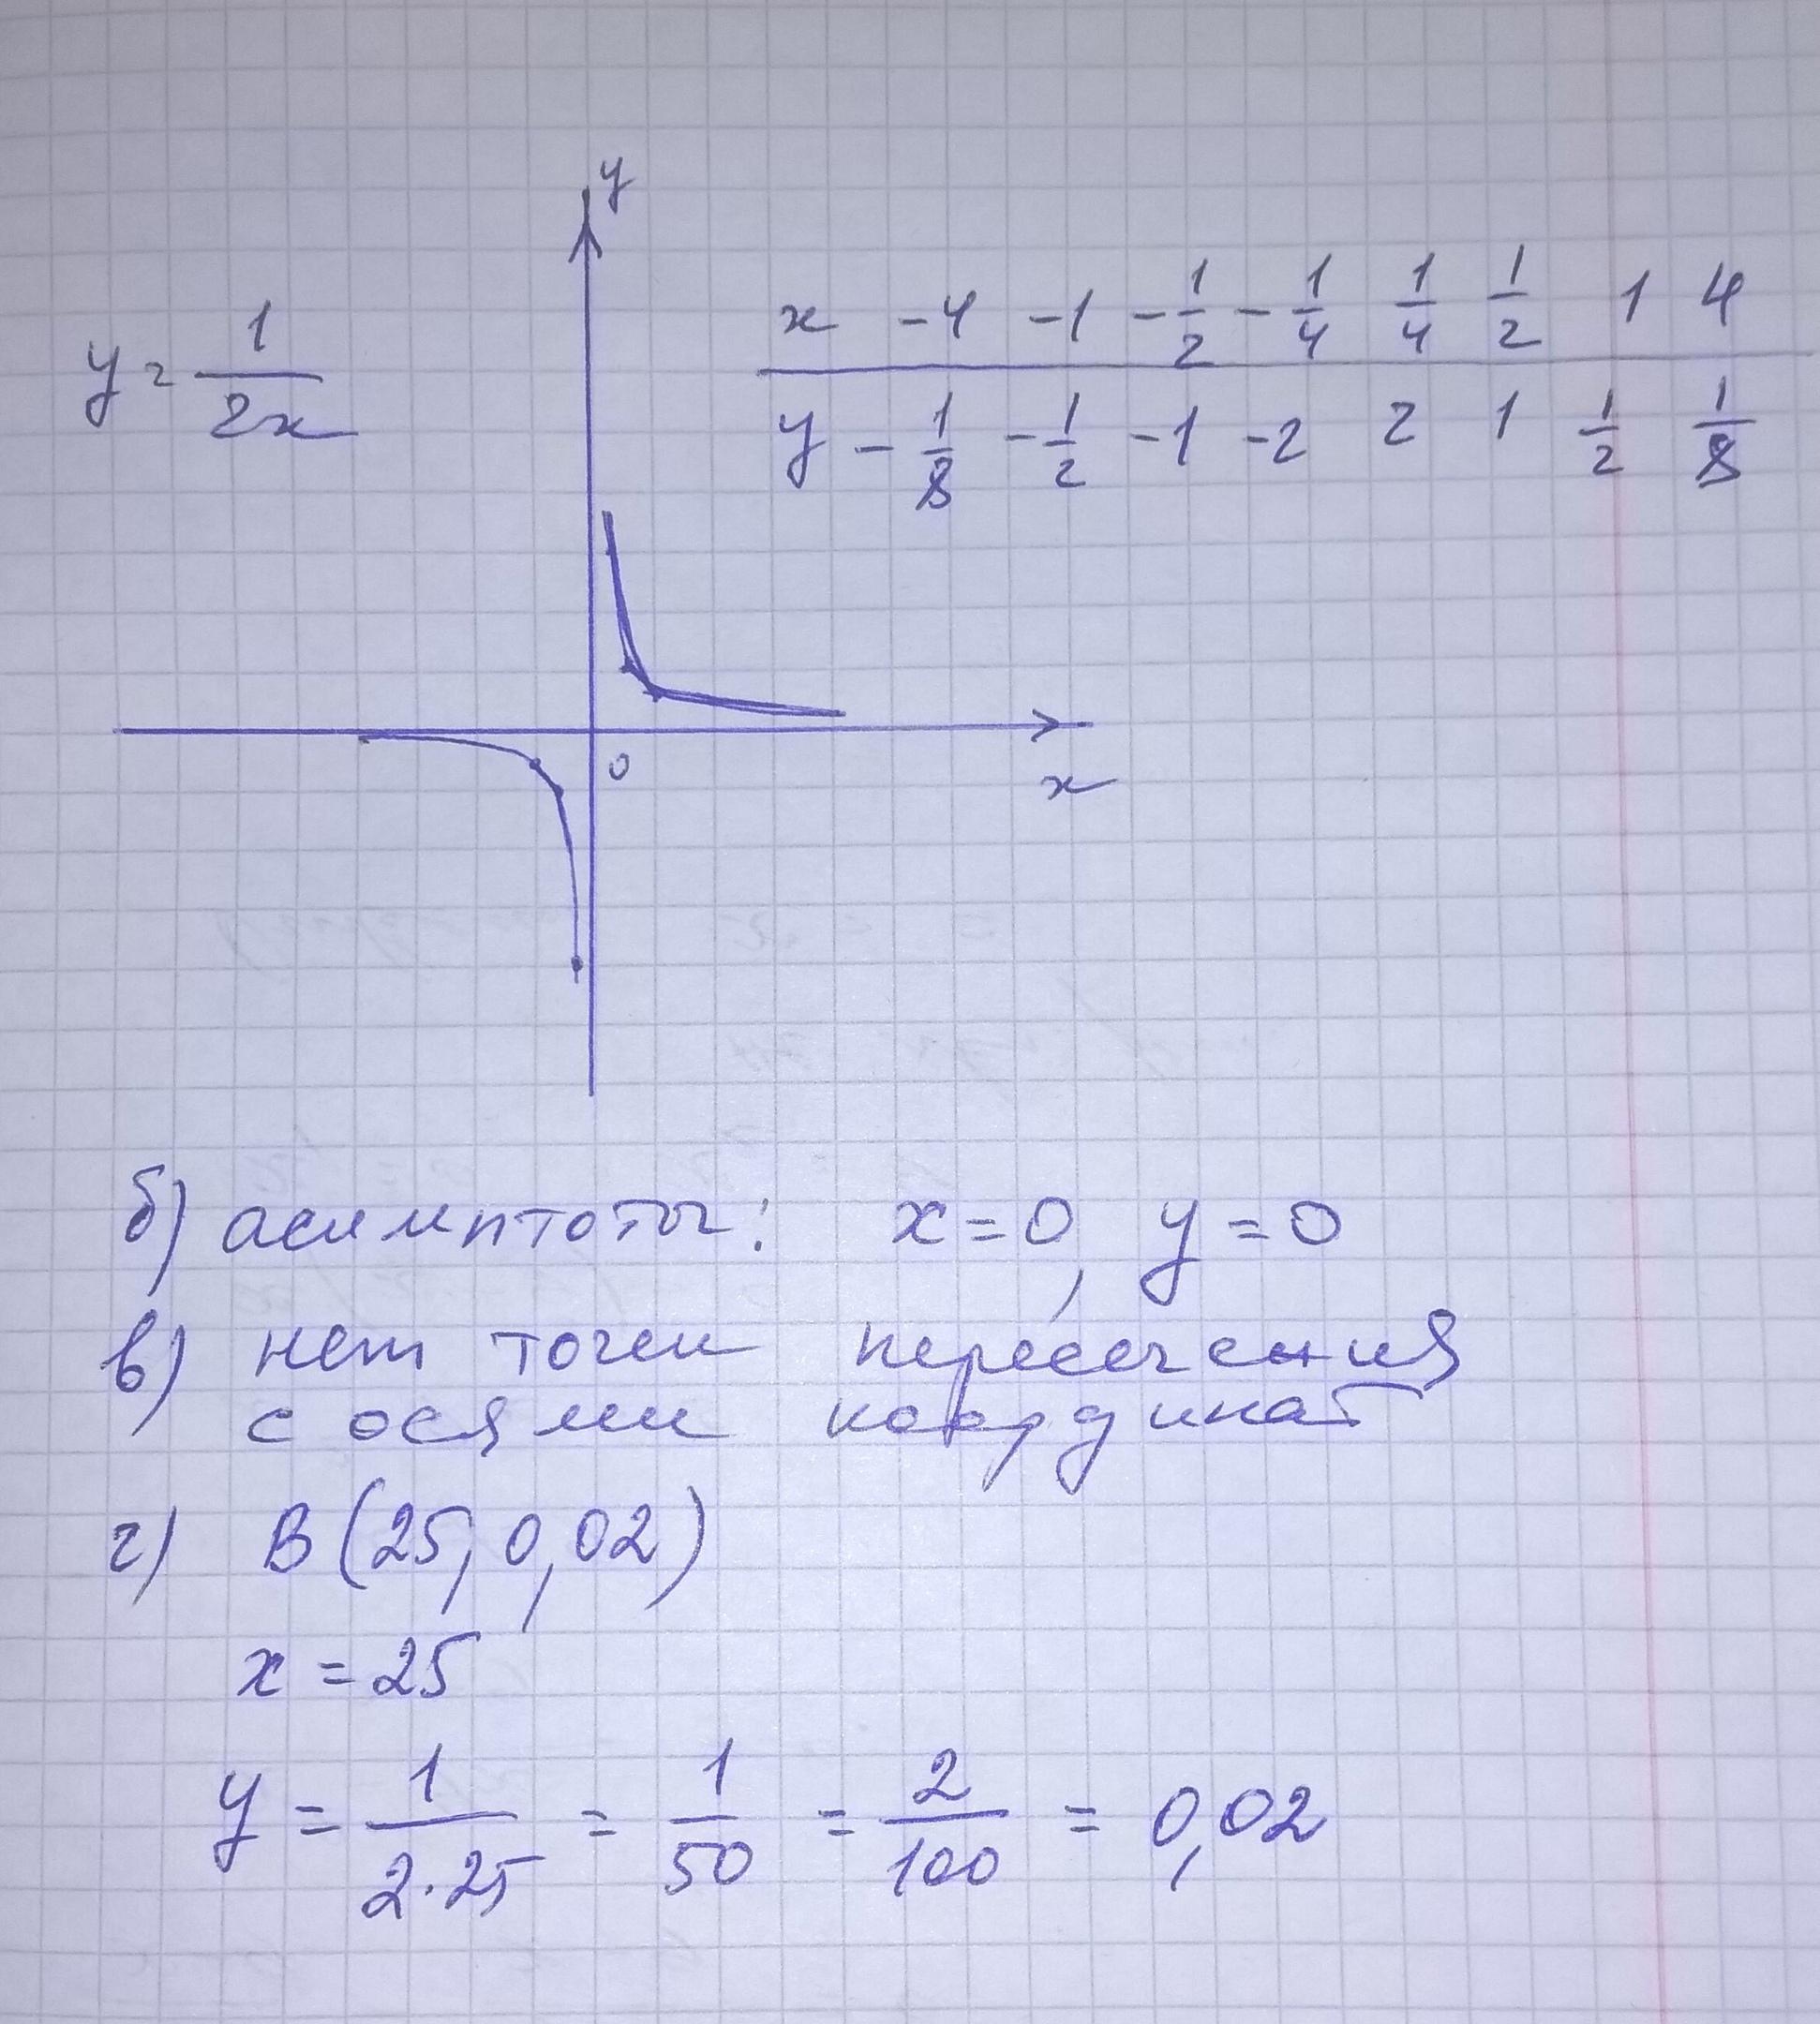 y
y = 1/2x
x -4 -1 -1/2 -1/4 1/4 1/2 1 4
y -1/8 -1/2 -1 -2 2 1 1/2 1/8
0
x
б) асимптоты: x = 0, y = 0
в) нет точек пересечения
с осями координат
г) B(25, 0,02)
x = 25
y = 1/2·25 = 1/50 = 2/100 = 0,02